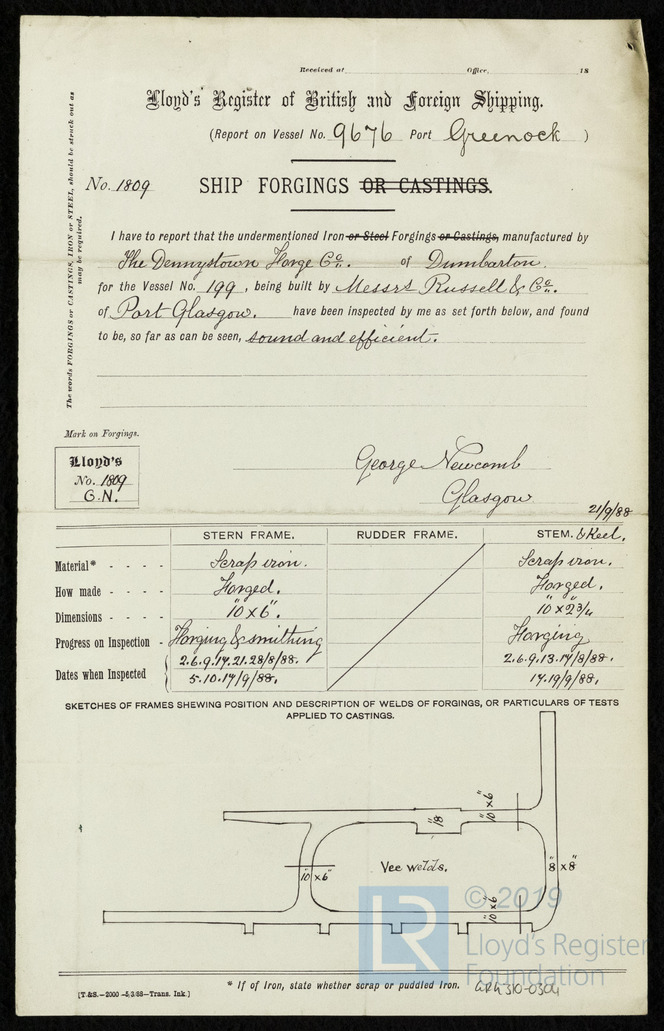 Received at Office, 18
Lloyd's Register of British and Foreign Shipping.
(Report on Vessel No. 9676 Port Greenock )
No. 1809
SHIP FORGINGS OR CASTINGS.
The words FORGINGS or CASTINGS, IRON or STEEL, should be struck out as
may be required.
I have to report that the undermentioned Iron or Steel Forgings or Castings, manufactured by
The Dennystown Forge Co. of Dumbarton.
for the Vessel No. 199, being built by Messrs Russell & Co.
of Port Glasgow. have been inspected by me as set forth below, and found
to be, so far as can be seen, sound and efficient.
Mark on Forgings.
Lloyd's
No. 1809
G.N.
George Newcomb
Glasgow
21/9/88
STERN FRAME. RUDDER FRAME. STEM. & Keel.
Material* - - - - Scrap iron. Scrap iron.
How made - - - - Forged. Forged.
Dimensions - - - - 10" x 6". 10" x 2 3/4"
Progress on Inspection - Forging & smithing Forging
Dates when Inspected
2.6.9.17.21.28/8/88. 2.6.9.13.17/8/88.
5.10.17/9/88. 17.19/9/88.
SKETCHES OF FRAMES SHEWING POSITION AND DESCRIPTION OF WELDS OF FORGINGS, OR PARTICULARS OF TESTS
APPLIED TO CASTINGS.
10" x 6"
18"
Vee welds.
10" x 6"
8" x 8"
10" x 6"
© 2019
LR
Lloyd's Register
Foundation
* If of Iron, state whether scrap or puddled Iron.
[T.&S.—2000—5/3/88—Trans. Ink.]
GRK310-0304